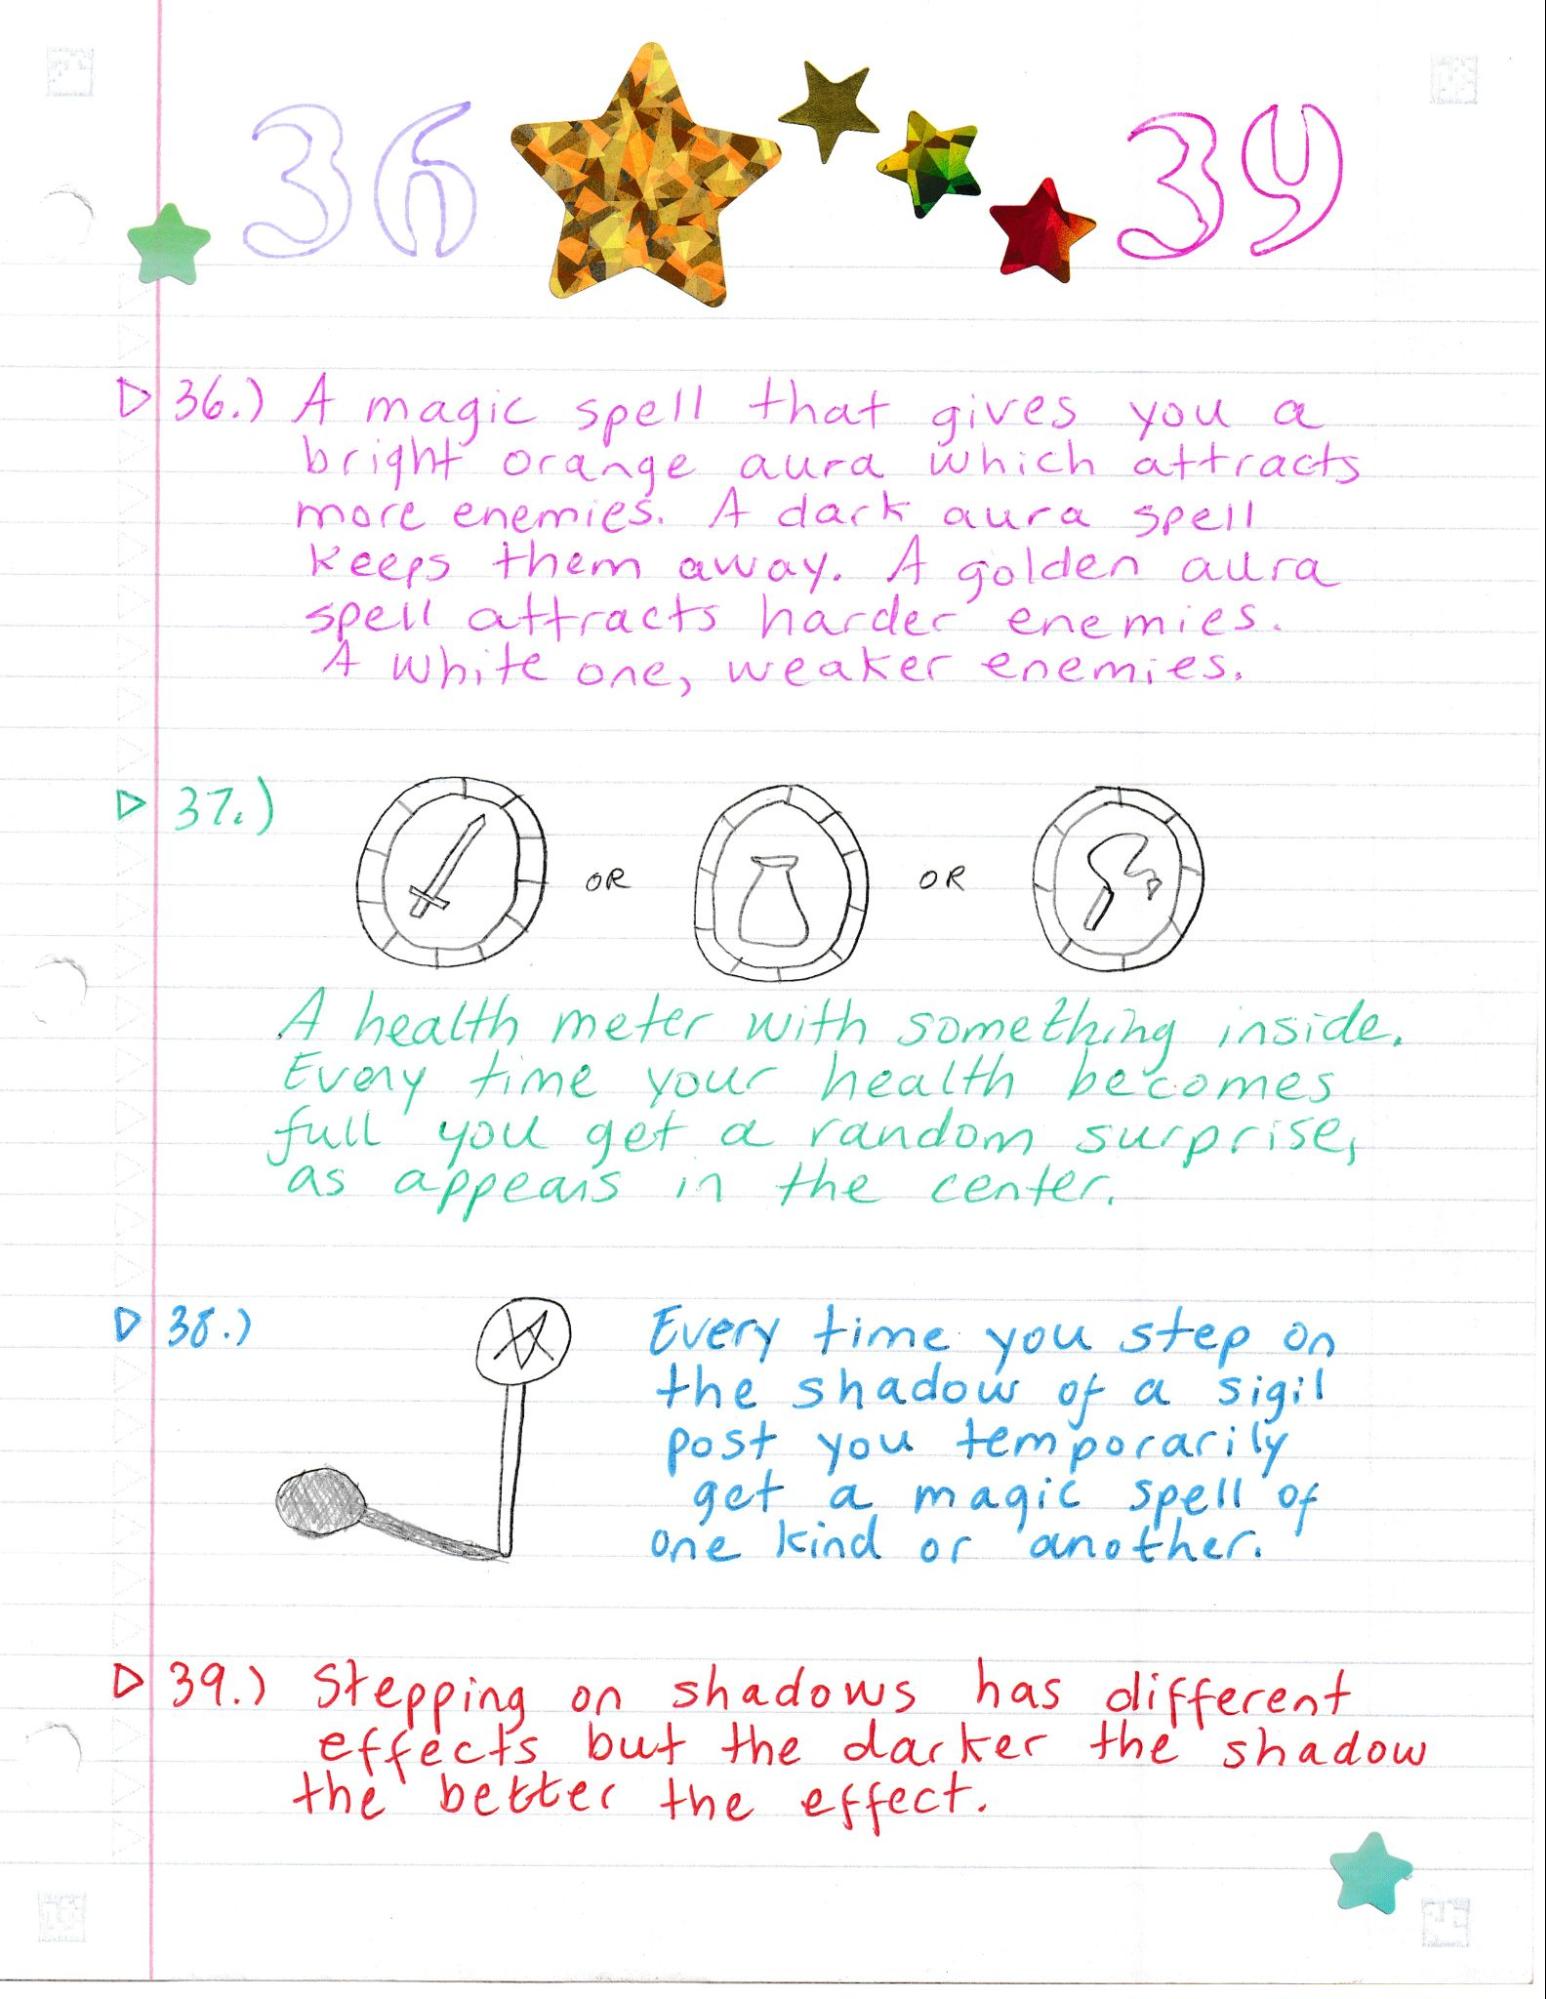 36 39
36.) A magic spell that gives you a
bright orange aura which attracts
more enemies. A dark aura spell
keeps them away. A golden aura
spell attracts harder enemies.
A white one, weaker enemies.
37.)
OR OR
A health meter with something inside.
Every time your health becomes
full you get a random surprise,
as appears in the center.
38.)
Every time you step on
the shadow of a sigil
post you temporarily
get a magic spell of
one kind or another.
39.) Stepping on shadows has different
effects but the darker the shadow
the better the effect.